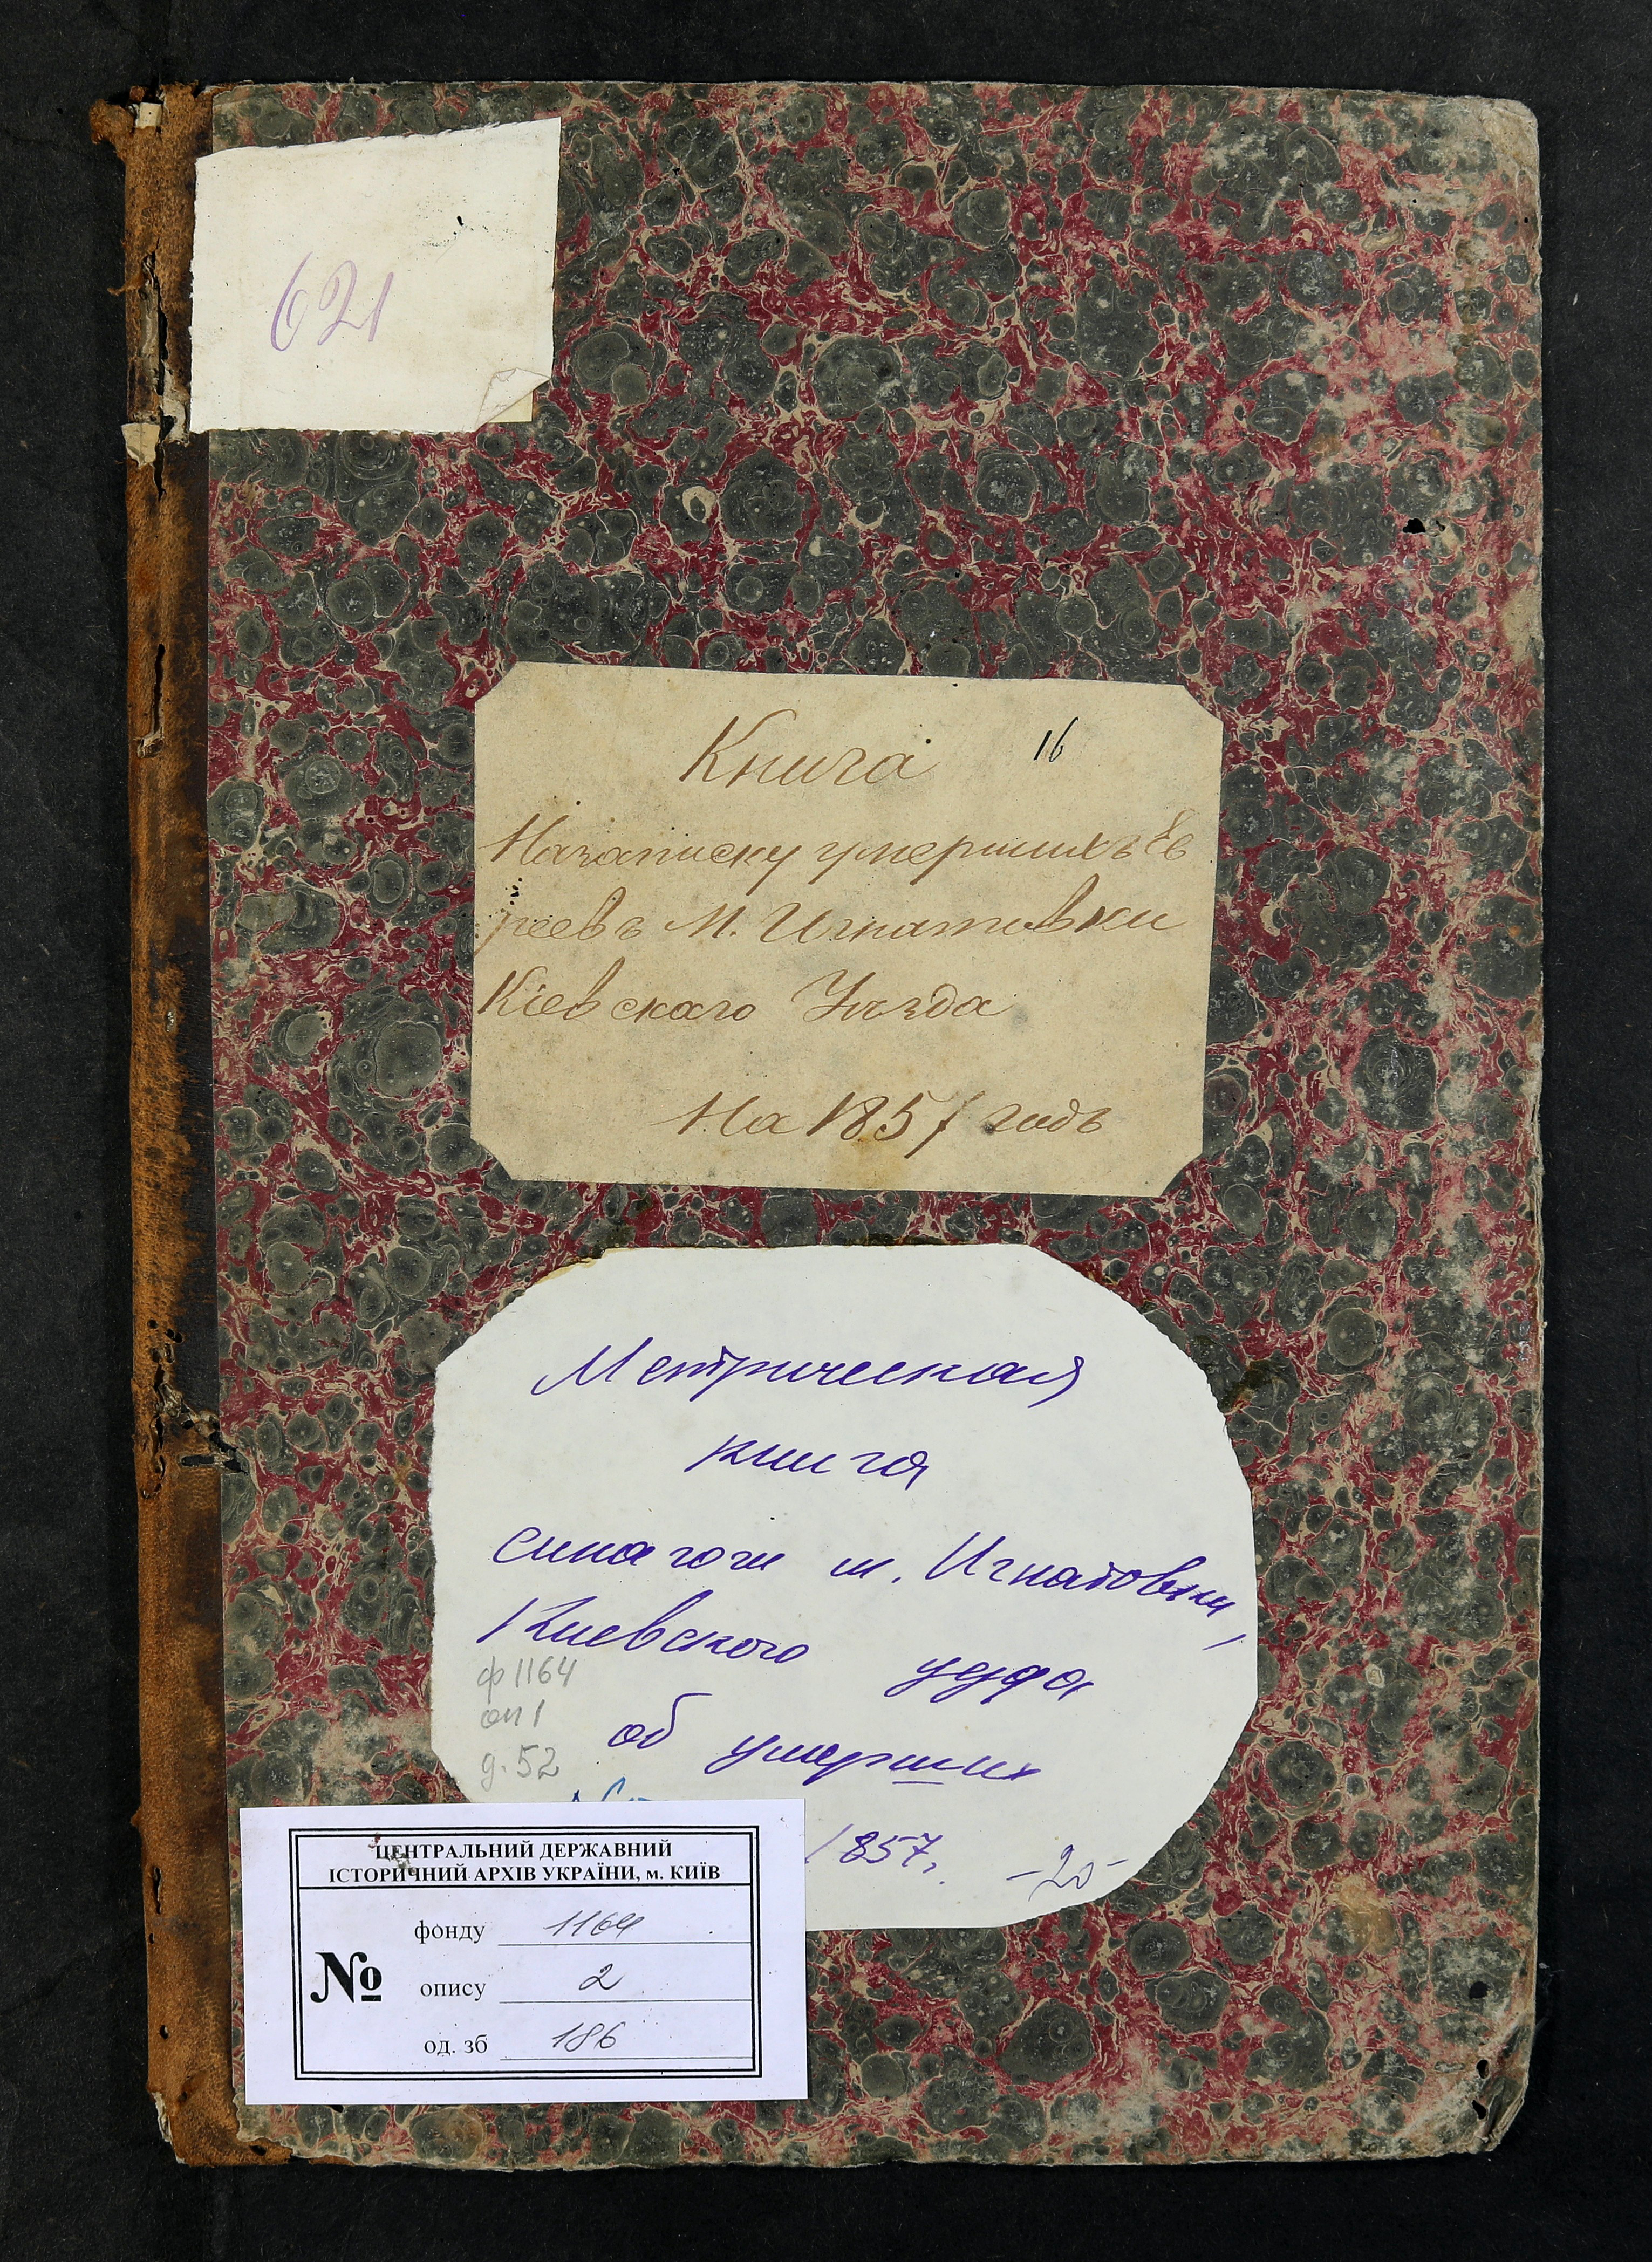 621
Книга 16
На записку умершихъ Ев
реевъ М. Игнатовки
Кіевскаго Уѣзда
На 1857 годъ
Метрическая
книга
синагоги м. Игнатовки,
Киевского уезда
ф 1164
оп 1
об умерших
д. 52
1857.
-20-
ЦЕНТРАЛЬНИЙ ДЕРЖАВНИЙ
ІСТОРИЧНИЙ АРХІВ УКРАЇНИ, м. КИЇВ
№
фонду 1164
опису 2
од. зб 186